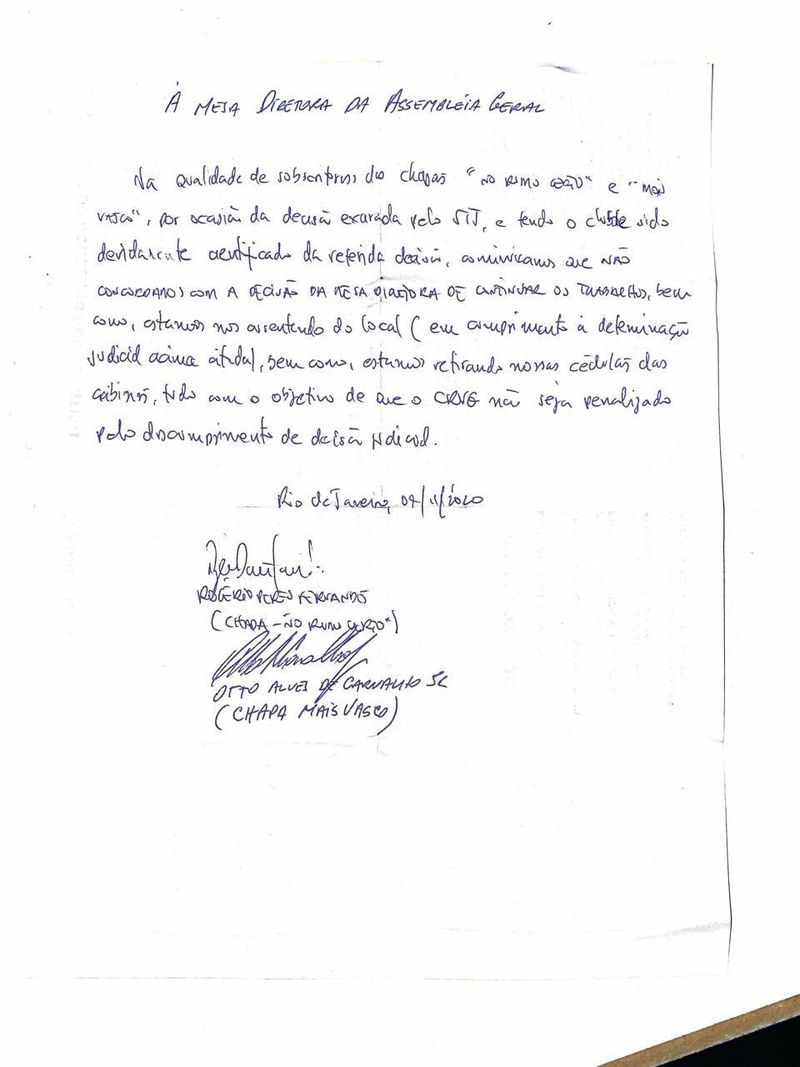 À MESA DIRETORA DA ASSEMBLEIA GERAL
Na qualidade de subscritores das chapas "NO RUMO CERTO" e "MAIS
VASCO", por ocasião da decisão exarada pelo STJ, e tendo o clube sido
devidamente certificado da referida decisão, comunicamos que NÃO
CONCORDAMOS COM A DECISÃO DA MESA DIRETORA DE CONTINUAR OS TRABALHOS, bem
como, estamos nos ausentando do local (em cumprimento à determinação
judicial acima citada), bem como, estamos retirando nossas cédulas das
cabines, tudo com o objetivo de que o CRVG não seja penalizado
pelo descumprimento de decisão judicial.
Rio de Janeiro, 07/11/2020
ROGÉRIO PERES FERNANDES
(CHAPA "NO RUMO CERTO")
OTTO ALVES DE CARVALHO
(CHAPA MAIS VASCO)